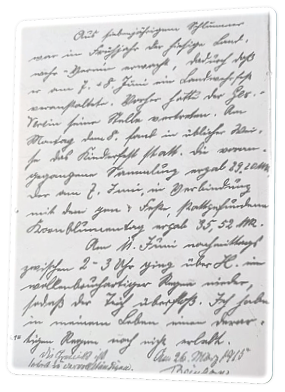 Aus siebenjährigem Schlummer
war im Frühjahr der hiesige Land-
wehr-Verein erwacht, dadurch daß
er am 7. u. 8. Juni ein Landwehrfest
veranstaltete. Vorher hatte der Ges.-
Verein seine Stelle vertreten. Am
Montag den 8. fand in üblicher Wei-
se das Kinderfest statt. Die voran-
gegangene Sammlung ergab 29,20 Mk.
der am 7. Juni, in Verbindung
mit dem gen. Feste, stattgefundene
Kornblumentag ergab 35,52 Mk.
Am 11. Juni nachmittags
zwischen 2-3 Uhr ging über H. ein
wolkenbruchartiger Regen nieder,
sodaß der Teich überfloß. Ich habe
in meinem Leben einen derar-
tigen Regen noch nie erlebt.
Die Chronik ist
Am 26. May 1915